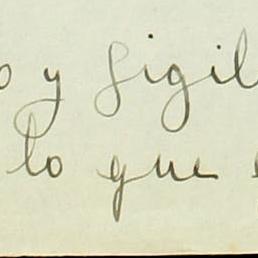 o y sigil
lo que